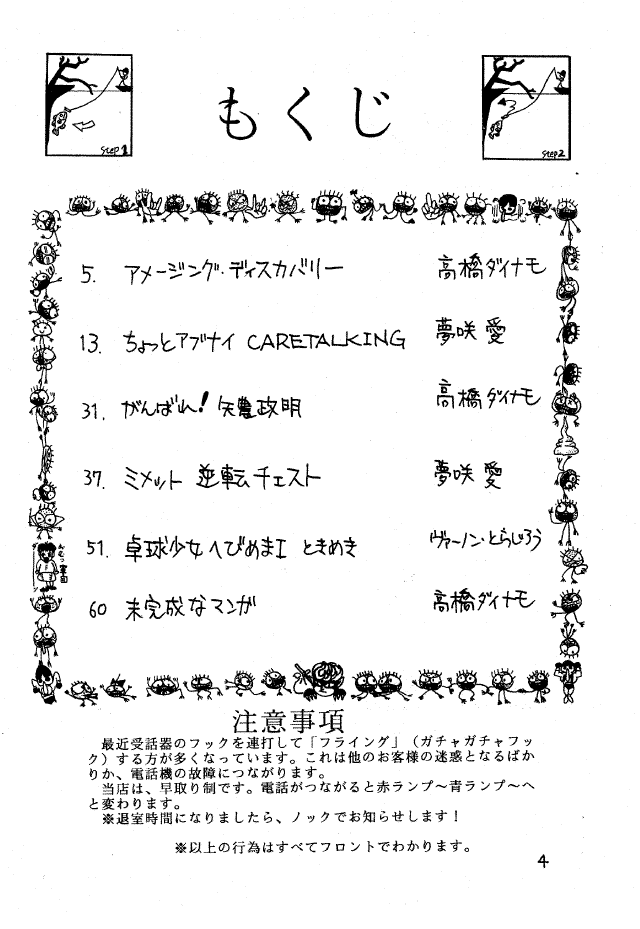 Step 1
もくじ
Step 2
5. アメージング・ディスカバリー 高橋ダイナモ
13. ちょっとアブナイ CARETALKING 夢咲 愛
31. がんばれ！矢農政明 高橋ダイナモ
37. ミメット 逆転チェスト 夢咲 愛
51. 卓球少女へびめまI ときめき ヴァーノン・とらじろう
60 未完成なマンガ 高橋ダイナモ
注意事項
最近受話器のフックを連打して「フライング」（ガチャガチャフッ
ク）する方が多くなっています。これは他のお客様の迷惑となるばか
りか、電話機の故障につながります。
当店は、早取り制です。電話がつながると赤ランプ～青ランプ～へ
と変わります。
※退室時間になりましたら、ノックでお知らせします！
※以上の行為はすべてフロントでわかります。
4